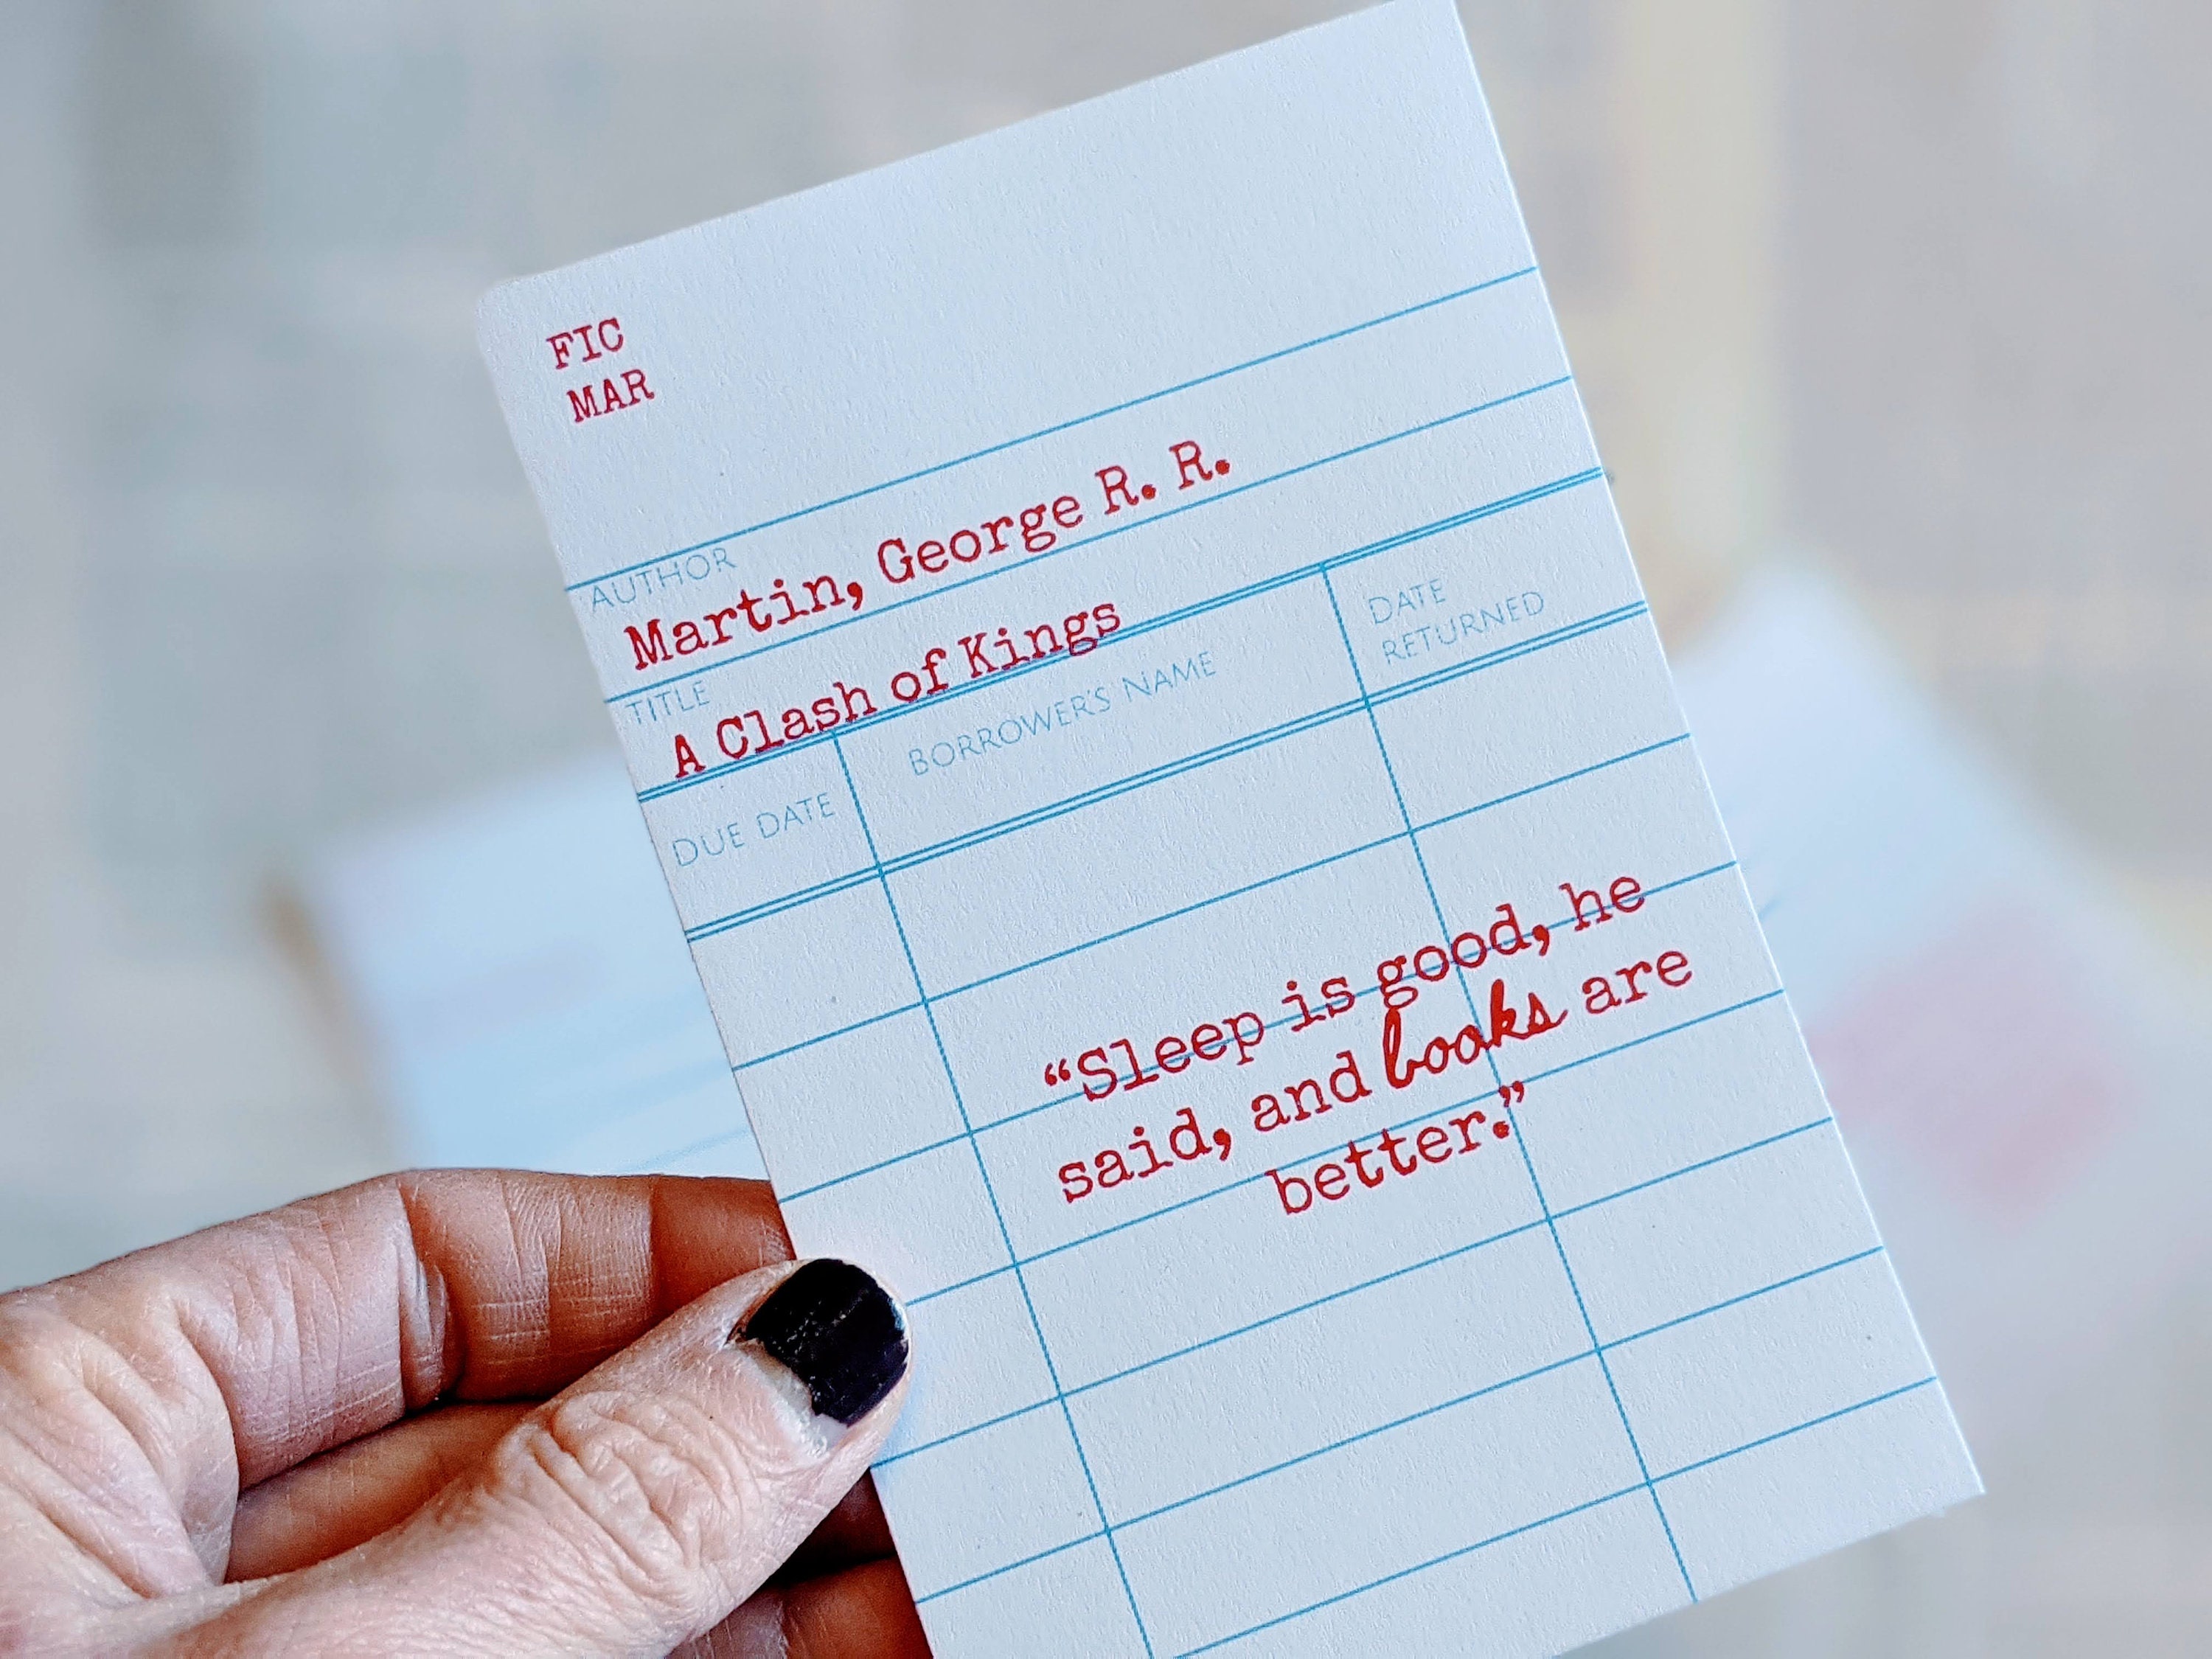 FIC
MAR
AUTHOR
Martin, George R. R.
TITLE
A Clash of Kings
DUE DATE
BORROWER'S NAME
DATE
RETURNED
“Sleep is good, he
said, and books are
better.”